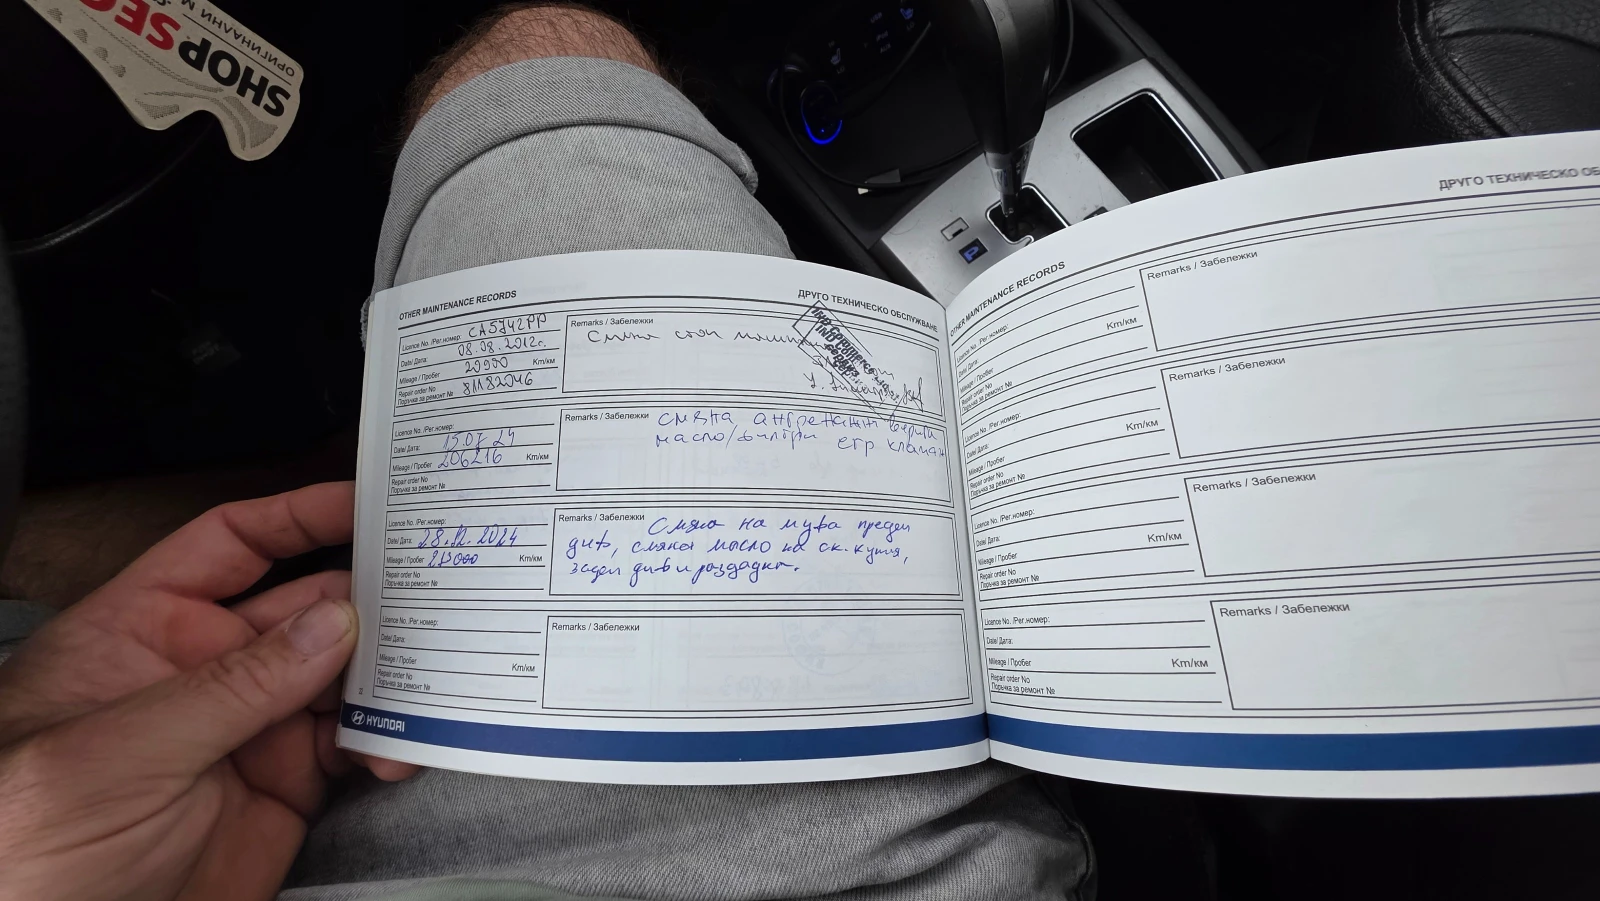 SHOP SEC
ОРИГИНАЛНИ М
P
OTHER MAINTENANCE RECORDS
ДРУГО ТЕХНИЧЕСКО ОБСЛУЖВАНЕ
Licence No. /Рег.номер: CA5742PP
Date/ Дата: 08.08.2012г.
Mileage / Пробег 20900 Km/км
Repair order No
Поръчка за ремонт № 81182046
Remarks / Забележки
Смяна стоп
Licence No. /Рег.номер:
Date/ Дата: 15.07 24
Mileage / Пробег 206216 Km/км
Repair order No
Поръчка за ремонт №
Remarks / Забележки
смяна ангренажни вериги
масло/филтри егр клапан
Licence No. /Рег.номер:
Date/ Дата: 28.12.2024
Mileage / Пробег 213000 Km/км
Repair order No
Поръчка за ремонт №
Remarks / Забележки
Смяна на муфа преден
диф, смяна масло на ск. кутия,
заден диф и раздадка.
Licence No. /Рег.номер:
Date/ Дата:
Mileage / Пробег Km/км
Repair order No
Поръчка за ремонт №
Remarks / Забележки
HYUNDAI
OTHER MAINTENANCE RECORDS
ДРУГО ТЕХНИЧЕСКО ОБ
Licence No. /Рег.номер:
Date/ Дата:
Mileage / Пробег Km/км
Repair order No
Поръчка за ремонт №
Remarks / Забележки
Licence No. /Рег.номер:
Date/ Дата:
Mileage / Пробег Km/км
Repair order No
Поръчка за ремонт №
Remarks / Забележки
Licence No. /Рег.номер:
Date/ Дата:
Mileage / Пробег Km/км
Repair order No
Поръчка за ремонт №
Remarks / Забележки
Licence No. /Рег.номер:
Date/ Дата:
Mileage / Пробег Km/км
Repair order No
Поръчка за ремонт №
Remarks / Забележки